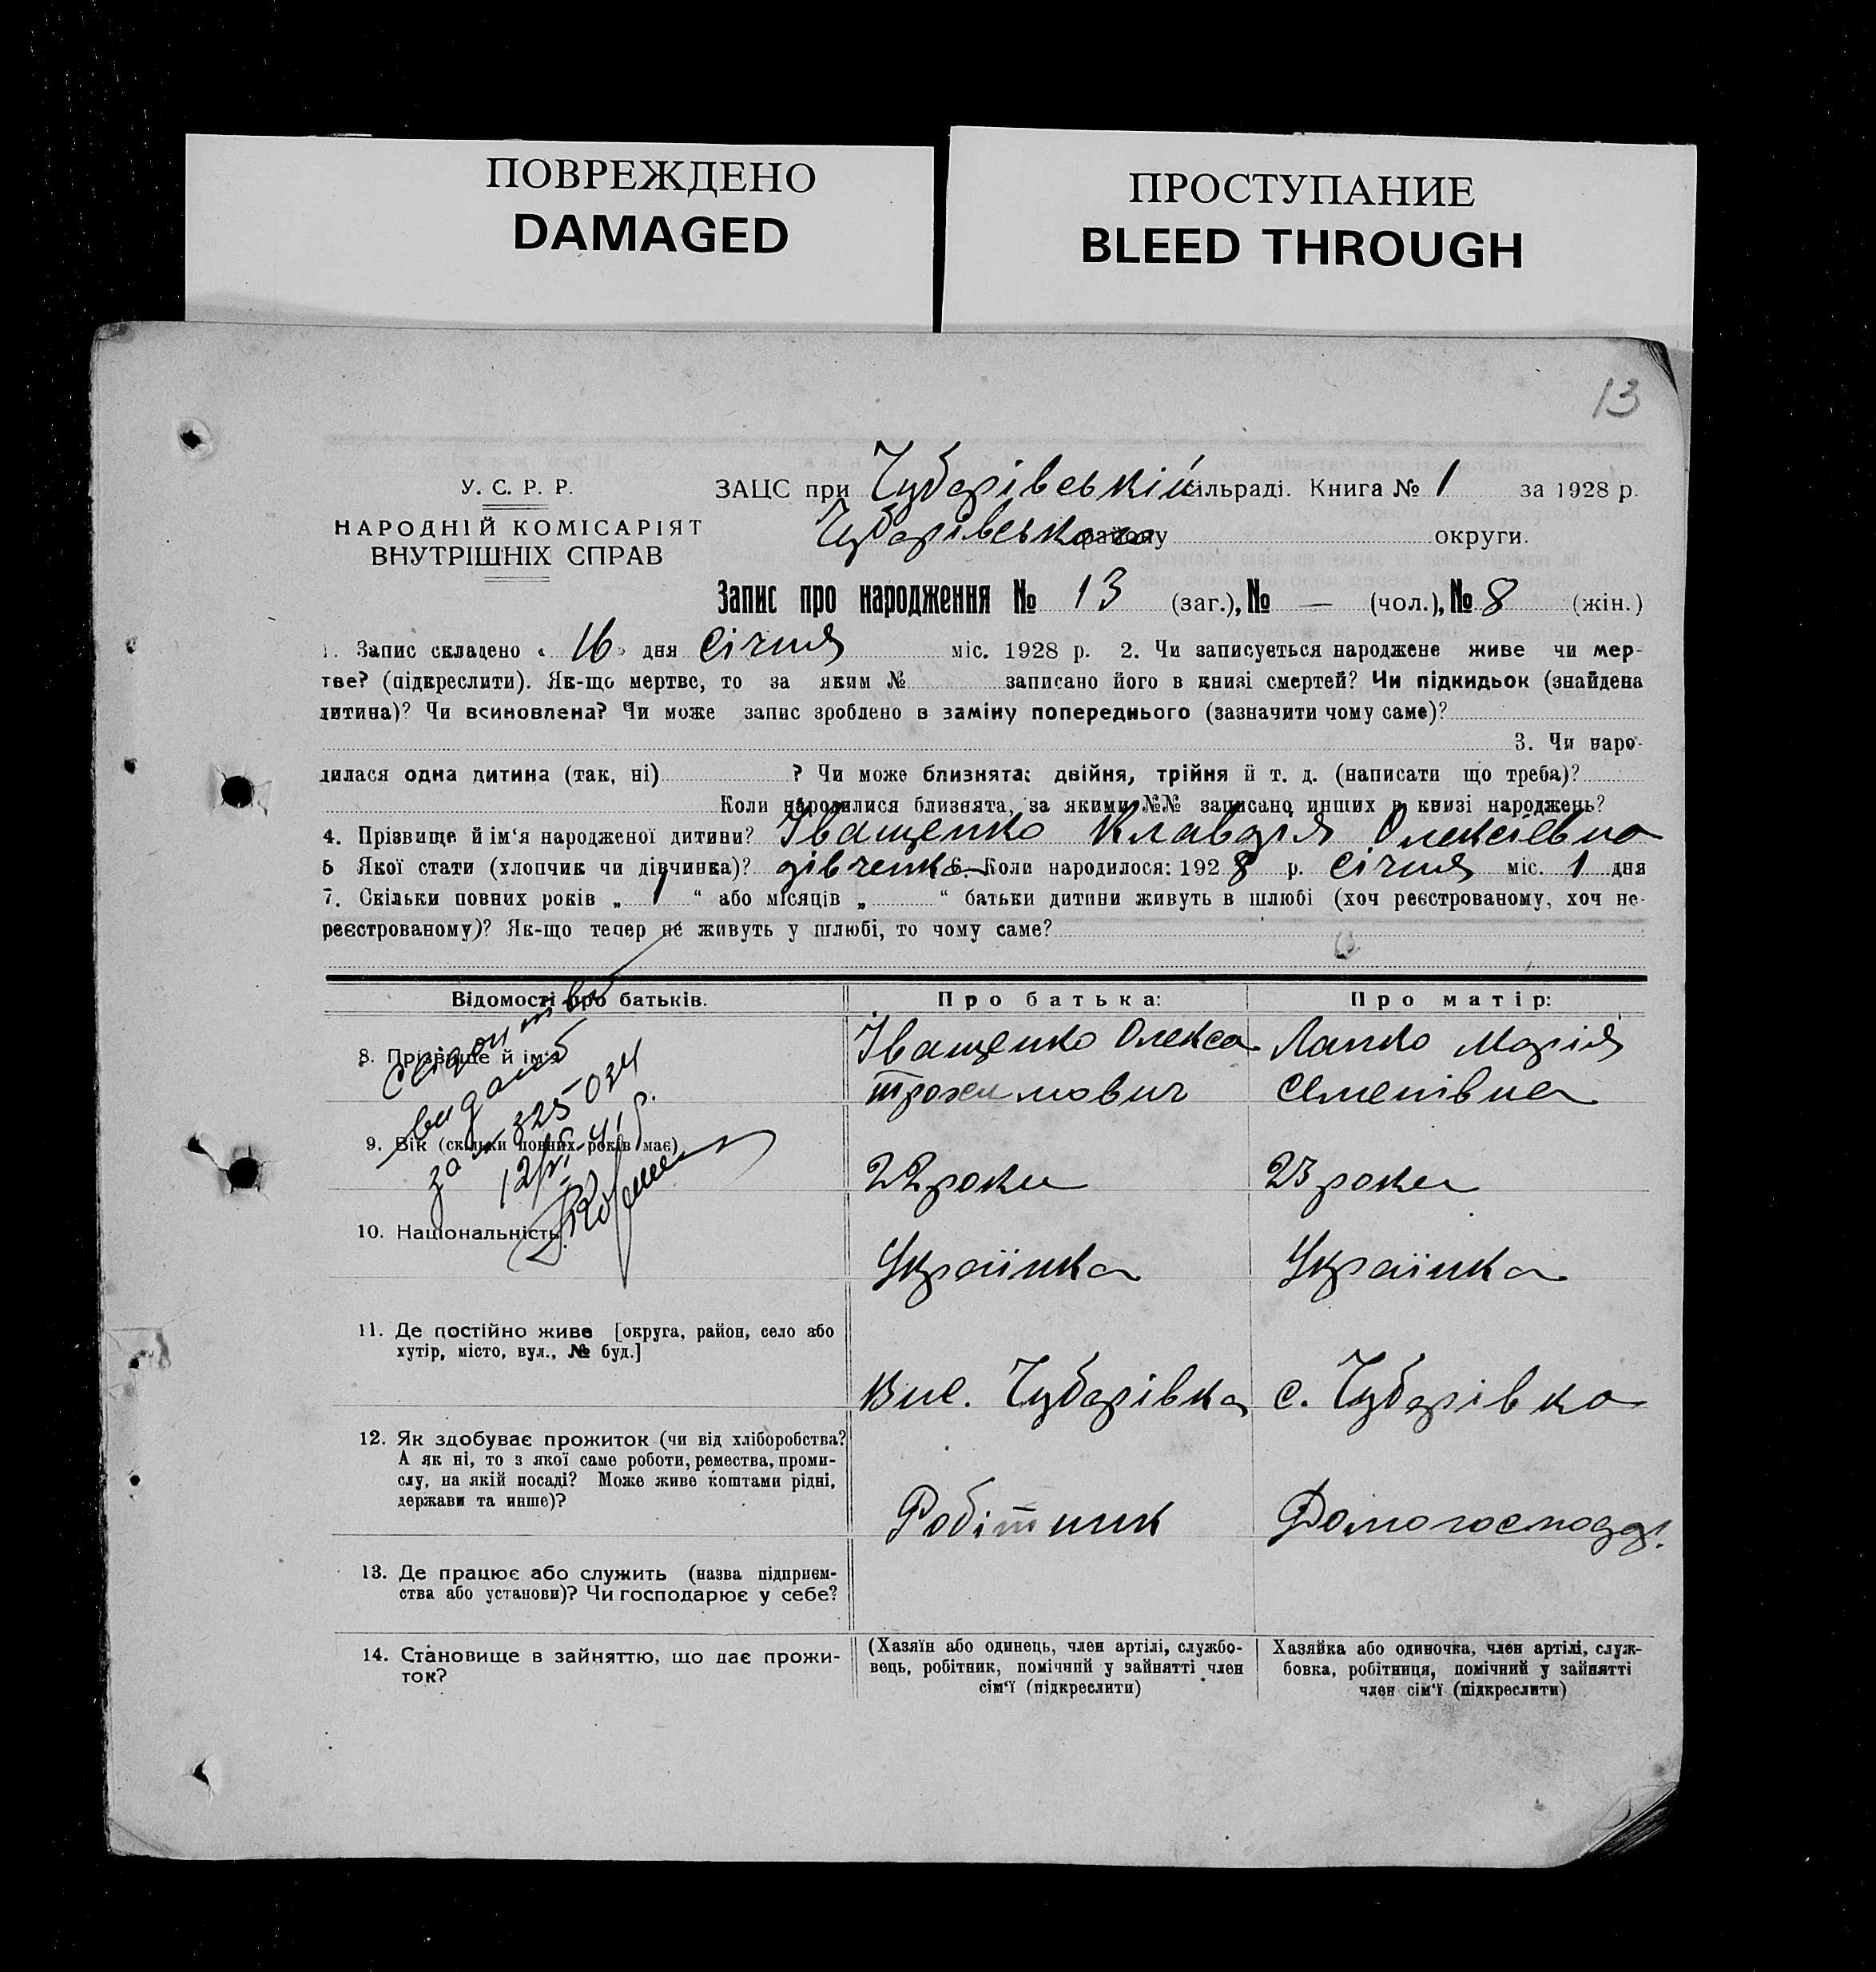 ПОВРЕЖДЕНО
DAMAGED
ПРОСТУПАНИЕ
BLEED THROUGH
13
У. С. Р. Р.
НАРОДНІЙ КОМІСАРІЯТ
ВНУТРІШНІХ СПРАВ
ЗАЦС при Чубарівській сільраді. Книга № 1 за 1928 р.
Чубарівського району округи.
Запис про народження № 13 (заг.), № — (чол.), № 8 (жін.)
1. Запис складено « 16 » дня Січня міс. 1928 р. 2. Чи записується народжене живе чи мер-
тве? (підкреслити). Як-що мертве, то за яким № записано його в книзі смертей? Чи підкидьок (знайдена
дитина)? Чи всиновлена? Чи може запис зроблено в заміну попереднього (зазначити чому саме)?
3. Чи наро-
дилася одна дитина (так, ні) ? Чи може близнята: двійня, трійня й т. д. (написати що треба)?
Коли народилися близнята, за якими №№ записано инших в книзі народжень?
4. Прізвище й ім‘я народженої дитини? Іващенко Клавдія Олексіевна
5 Якої стати (хлопчик чи дівчинка)? дівченка 6. Коли народилося: 1928 р. Січня міс. 1 дня
7. Скільки повних років „ 1 “ або місяців „ “ батьки дитини живуть в шлюбі (хоч реєстрованому, хоч не-
реєстрованому)? Як-що тепер не живуть у шлюбі, то чому саме?
Відомості про батьків.
Про батька:
Про матір:
8. Прізвище й ім‘я
Іващенко Олекса
Трохимович
Лапко Марія
Семенівна
свидоитво
видано
за № 325-034
9. Вік (скільки повних років має)
22 роки
23 роки
10. Національність
Українка
Українка
11. Де постійно живе [округа, район, село або
хутір, місто, вул., № буд.]
Вис. Чубарівка
с. Чубарівка
12. Як здобуває прожиток (чи від хліборобства?
А як ні, то з якої саме роботи, ремества, проми-
слу, на якій посаді? Може живе коштами рідні,
держави та инше)?
Робітник
Домогосподар.
13. Де працює або служить (назва підприєм-
ства або установи)? Чи господарює у себе?
14. Становище в зайняттю, що дає прожи-
ток?
(Хазяїн або одинець, член артілі, службо-
вець, робітник, помічний у зайнятті член
сім‘ї (підкреслити)
Хазяйка або одиночка, член артілі, служ-
бовка, робітниця, помічний у зайнятті
член сім‘ї (підкреслити)